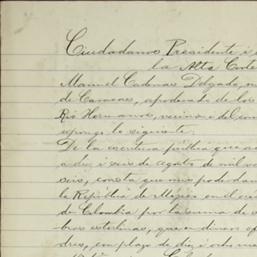 Ciudadanos Presidente i
la Alta Corte
Manuel Cadenas Delgado,
de Caracas, apoderado de los
Rio Hermanos, vecino del
expongo lo siguiente:
De la escritura pública que
a diez i seis de agosto de mil
seis, consta que mis poderdan
la República de Méjico en el
de Colombia por la suma de
bras esterlinas, que en dinero
dres, con plazo de diez i ocho